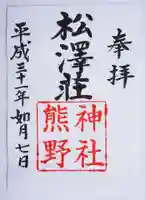 奉拝
松澤荘
熊野
神社
平成三十一年如月七日